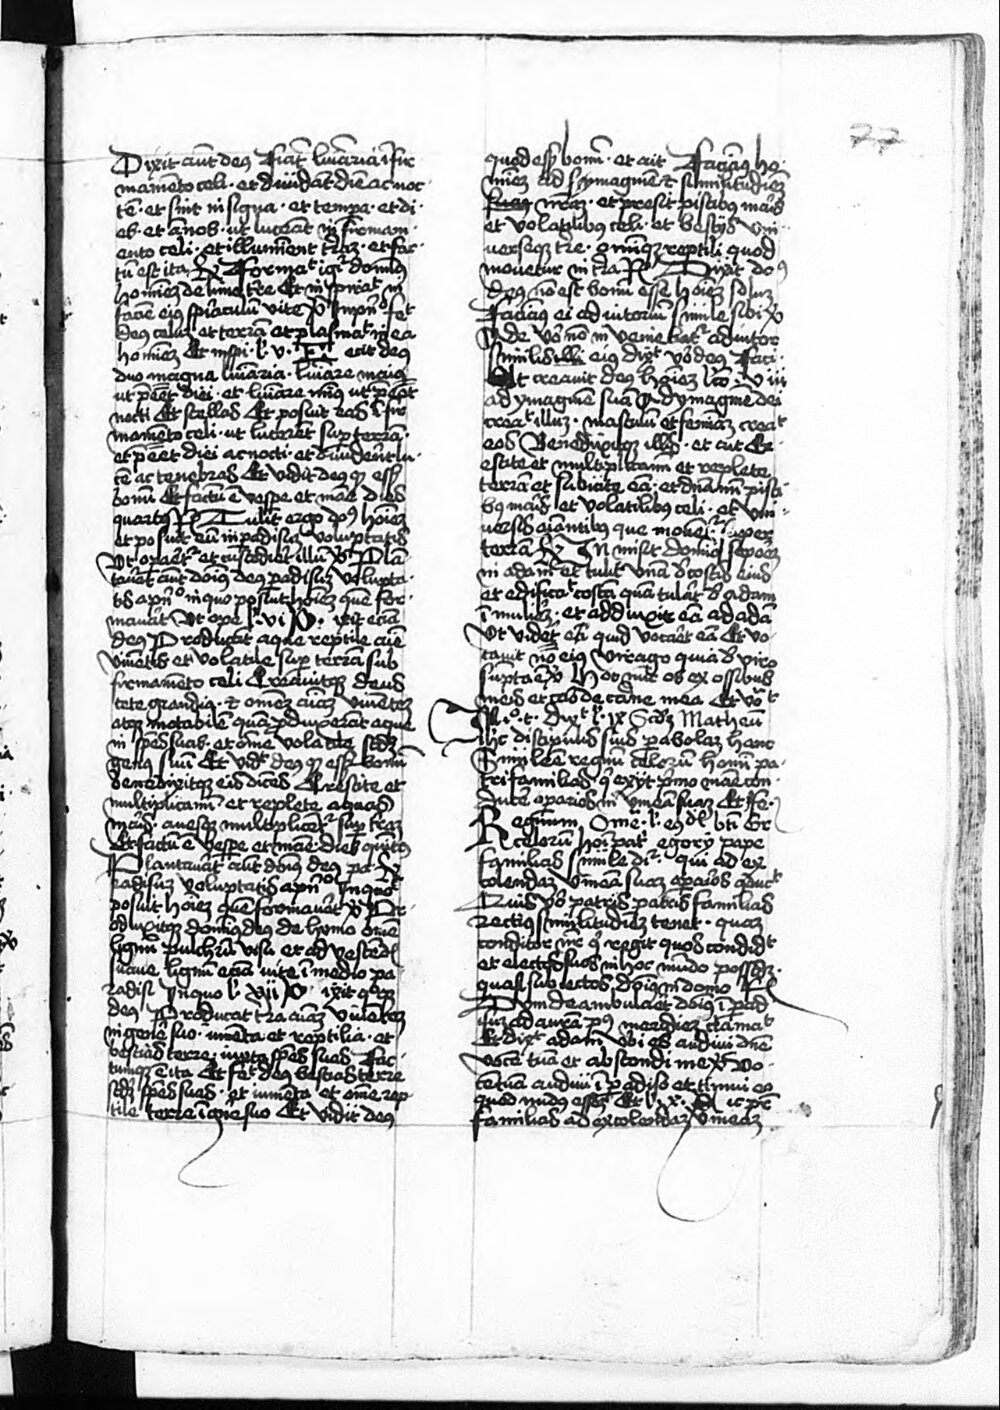 Dixit aut deus Fiat luminaria i fir
mamento celi · et dividat die ac noc
te · et sint in signa · et tempa · et di
es · et annos · ut luceat in firmam
ento celi · et illuminent tram · et fac
tu est ita Format igr dominus
hominem de limo tre Et inspirat in
facie eius spiraculu vite
deus celu et terra et plasmat in ea
homine Et inspi · l · v · Fecit deus
duo magna luminaria · luminare maius
ut peet diei · et luminare minus ut peet
nocti Et stellas Et posuit eas i fir
mamento celi · ut lucerent sup terra ·
et peent diei ac nocti · et dividerent lu
ce ac tenebras Et vidit deus q esset
bonu Et factu e vespe et mane dies
quartus Tulit ergo dns hoiem
et posuit eu in padisu voluptatis
Ut opaet et custodiet illu Plan
taverat aut dominus deus padisum volupta
tis a pn in quo posuit hoiem que for
maverat Ut ope l · vi · ixit etia
deus Producat aque reptile aie
viventis et volatile sup terra sub
firmamento celi Creavitque deus
cete grandia · et omem aiam viventem
atque motabile qua pduxerant aque
in spes suas · et ome volatile scdm
genus suu Et vidit deus q esset bonu
benedixitque eis dicens Crescite et
multiplicamini et replete aquas
maris · avesque multiplicent sup tram
Et factu e vespe et mane dies quintus
Plantaverat aut dominus deus pa
radisum voluptatis a pn In quo
posuit hoiem que formaverat Pr
oduxitque dominus deus de humo omne
lignu pulchru visu et ad vescend
suave lignu etia vite i medio pa
radisi In quo l · vii · ixit quoque
deus Producat tra aiam viventem
in genere suo · iumenta et reptilia · et
bestias terre · iuxta spes suas Fac
tumque e ita Et fecit deus bestias terre
scdm spes suas · et iumenta · et ome rep
tile terre i gne suo Et vidit deus
quod esset bonu · et ait Faciamus ho
minem ad ymagine et similitudinem
nram · et presit piscibus maris
et volatilibus celi · et bestiis uni
verseque tre · omnique reptili quod
movetur in tra Dixit dns
deus no est bonu esse hoiem solum
Faciamus ei adiutoriu simile sibi
Ade vo no inveniebatur adiutor
similis eius dixit vo deus Faci
Et creavit deus hoiem l viii
ad ymagine sua Ad ymagine dei
creavit illum · masculu et femina creavit
eos Benedixitque illis · et ait Cr
escite et multiplicamini et replete
terra et subicite ea · et dnamini pisci
bus maris et volatilibus celi · et uni
versis aiantibus que moventur super
terra In misit dominus sopore
in adam et tulit una de costis eius
et edificavit costa qua tulerat de adam
i muliere · et adduxit ea ad ada
Ut videret quid vocaret ea Et vo
cavit nome eius virago quia de viro
sumpta e Hoc nuc os ex ossibus
meis et caro de carne mea Et
In · t · Dixit l · ix Scdm Matheu
ihc discipulis suis parabolam hanc
Simile e regnu celoru homini pa
trifamilias q exiit primo mane con
ducere operarios in vinea suam Et re
Regnum Ome · l · eusd bti Gr
celoru homi pat egorii pape
familias simile dr · qui ad ex
colendam vinea suam opaios qduct
Quis vo patris patris familias
rectius similitudine tenet · quam
conditor nr q regit quos condidit
et electos suos in hoc mundo possidet
quasi subiectos dominus in domo
Dum deambularet dominus i pad
isum ad aura post meridiem clamavit
Et dixit adam ubi es audivi dne
voce tua et abscondi me Vo
ce tua audivi i padiso et timui eo
quod nudus essem Et l · x · ic per
familias ad excolendam vineam